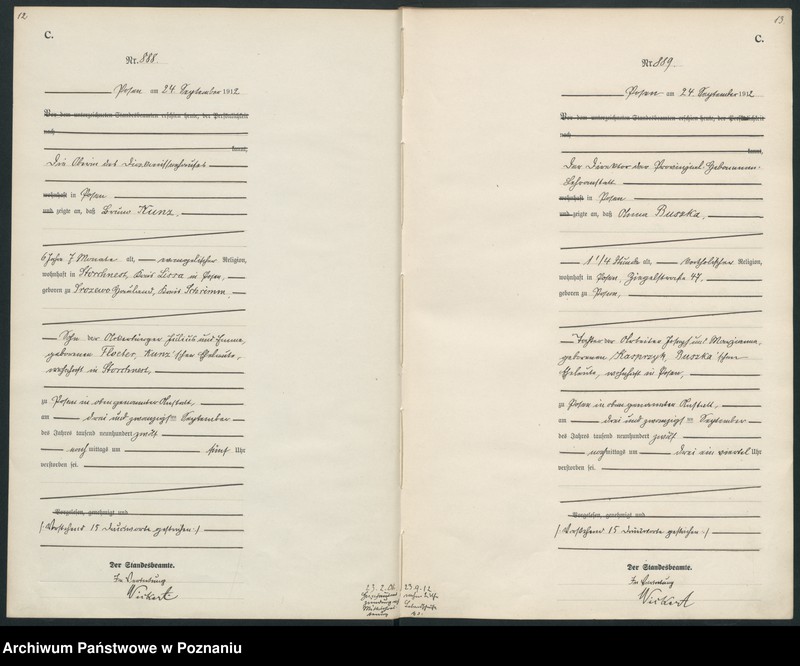 12
C.
Nr. 888.
Posen am 24. September 1912
Vor dem unterzeichneten Standesbeamten erschien heute, der Persönlichkeit
nach
kannt,
Die Oberin des Diakonissenhauses
wohnhaft in Posen
und zeigte an, daß Bruno Kunz,
6 Jahre 7 Monate alt, evangelischer Religion,
wohnhaft in Storchnest, Kreis Lissa in Posen,
geboren zu Hauland, Kreis Schrimm
Sohn der Ackerbürger Julius und Emma,
geborenen Kunz'schen Eheleute,
wohnhaft in Storchnest,
zu Posen in obengenannter Anstalt,
am drei und zwanzigsten September
des Jahres tausend neunhundert zwölf
nachmittags um fünf Uhr
verstorben sei.
Vorgelesen, genehmigt und
(: Vorstehend 15 Druckworte gestrichen :)
Der Standesbeamte.
In Vertretung
Wickert
23.2.06
13
C.
Nr. 889
Posen am 24. September 1912
Vor dem unterzeichneten Standesbeamten erschien heute, der Persönlichkeit
nach
kannt,
Der Direktor der Provinzial-Hebammen-
Lehranstalt
wohnhaft in Posen
und zeigte an, daß Anna Buszka,
1 1/4 Stunde alt, katholischer Religion,
wohnhaft in Posen, Ziegelstraße 47.
geboren zu Posen,
Tochter der Arbeiter Joseph und Marianna,
geborenen Kasprzyk, Buszka'schen
Eheleute, wohnhaft in Posen,
zu Posen in obengenannter Anstalt,
am drei und zwanzigsten September
des Jahres tausend neunhundert zwölf
nachmittags um drei ein viertel Uhr
verstorben sei.
Vorgelesen, genehmigt und
(: Vorstehend 15 Druckworte gestrichen :)
Der Standesbeamte.
In Vertretung
Wickert
23.9.12
Archiwum Państwowe w Poznaniu